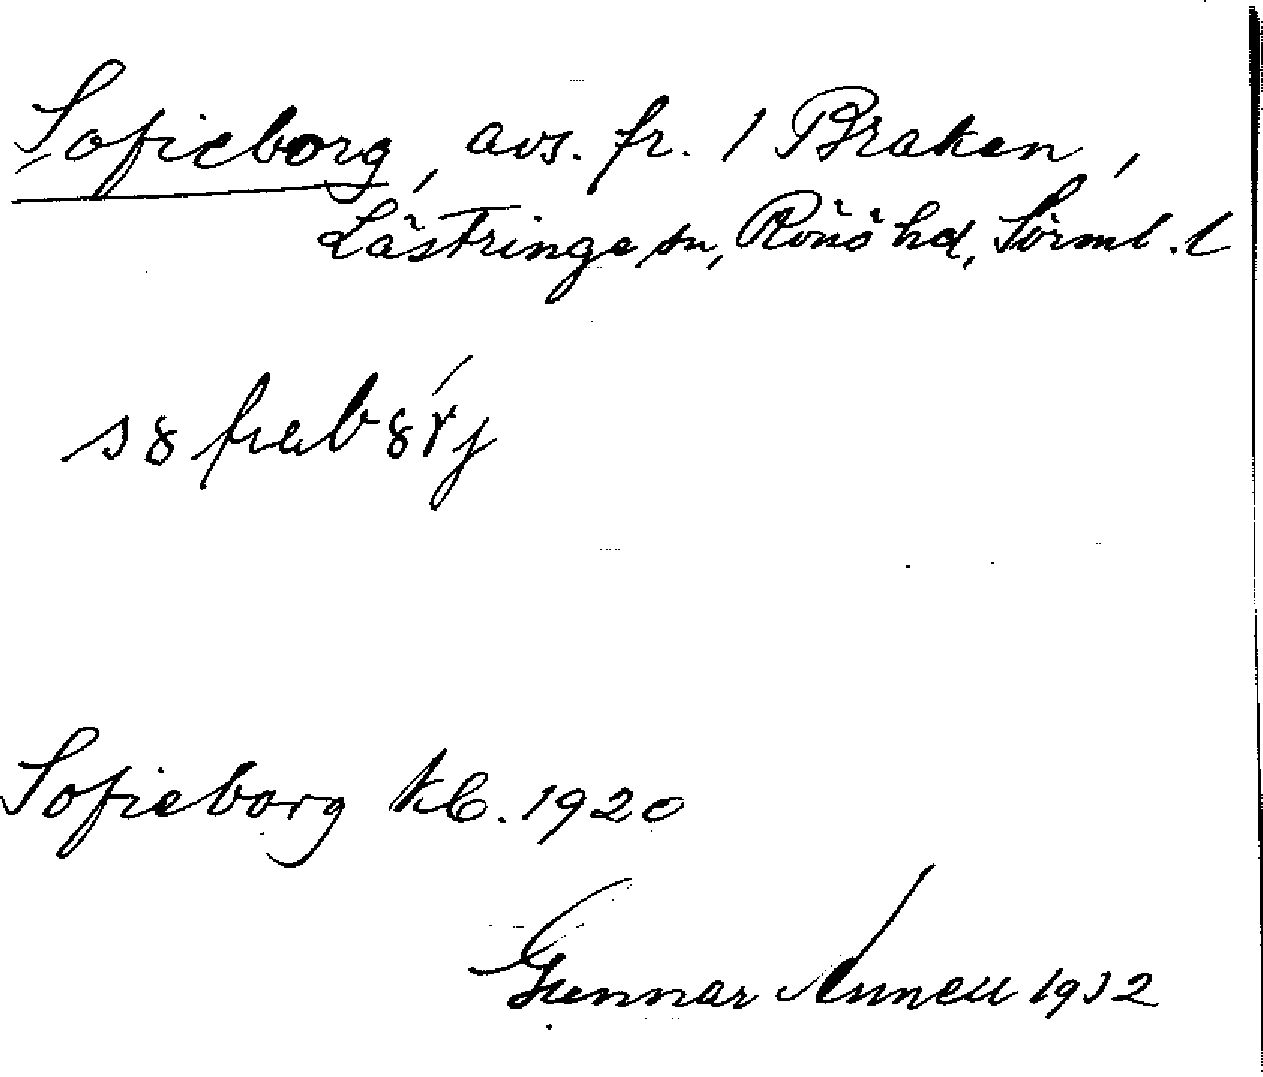 Sofieborg, avs. fr. 1 Braken,
Lästringe sn, Rönö hd, Sörml. l
Sofieborg kb. 1920
Gunnar Annell 1932